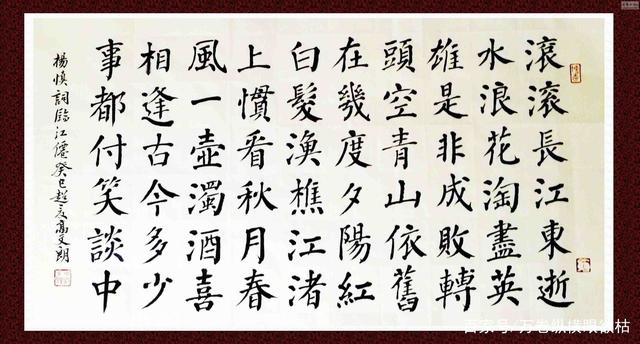 滾滾長江東逝
水浪花淘盡英
雄是非成敗轉
頭空青山依舊
在幾度夕陽紅
白髮漁樵江渚
上慣看秋月春
風一壺濁酒喜
相逢古今多少
事都付笑談中
楊慎詞臨江僊癸巳高文朗
百家号/万卷纵横眼欲枯